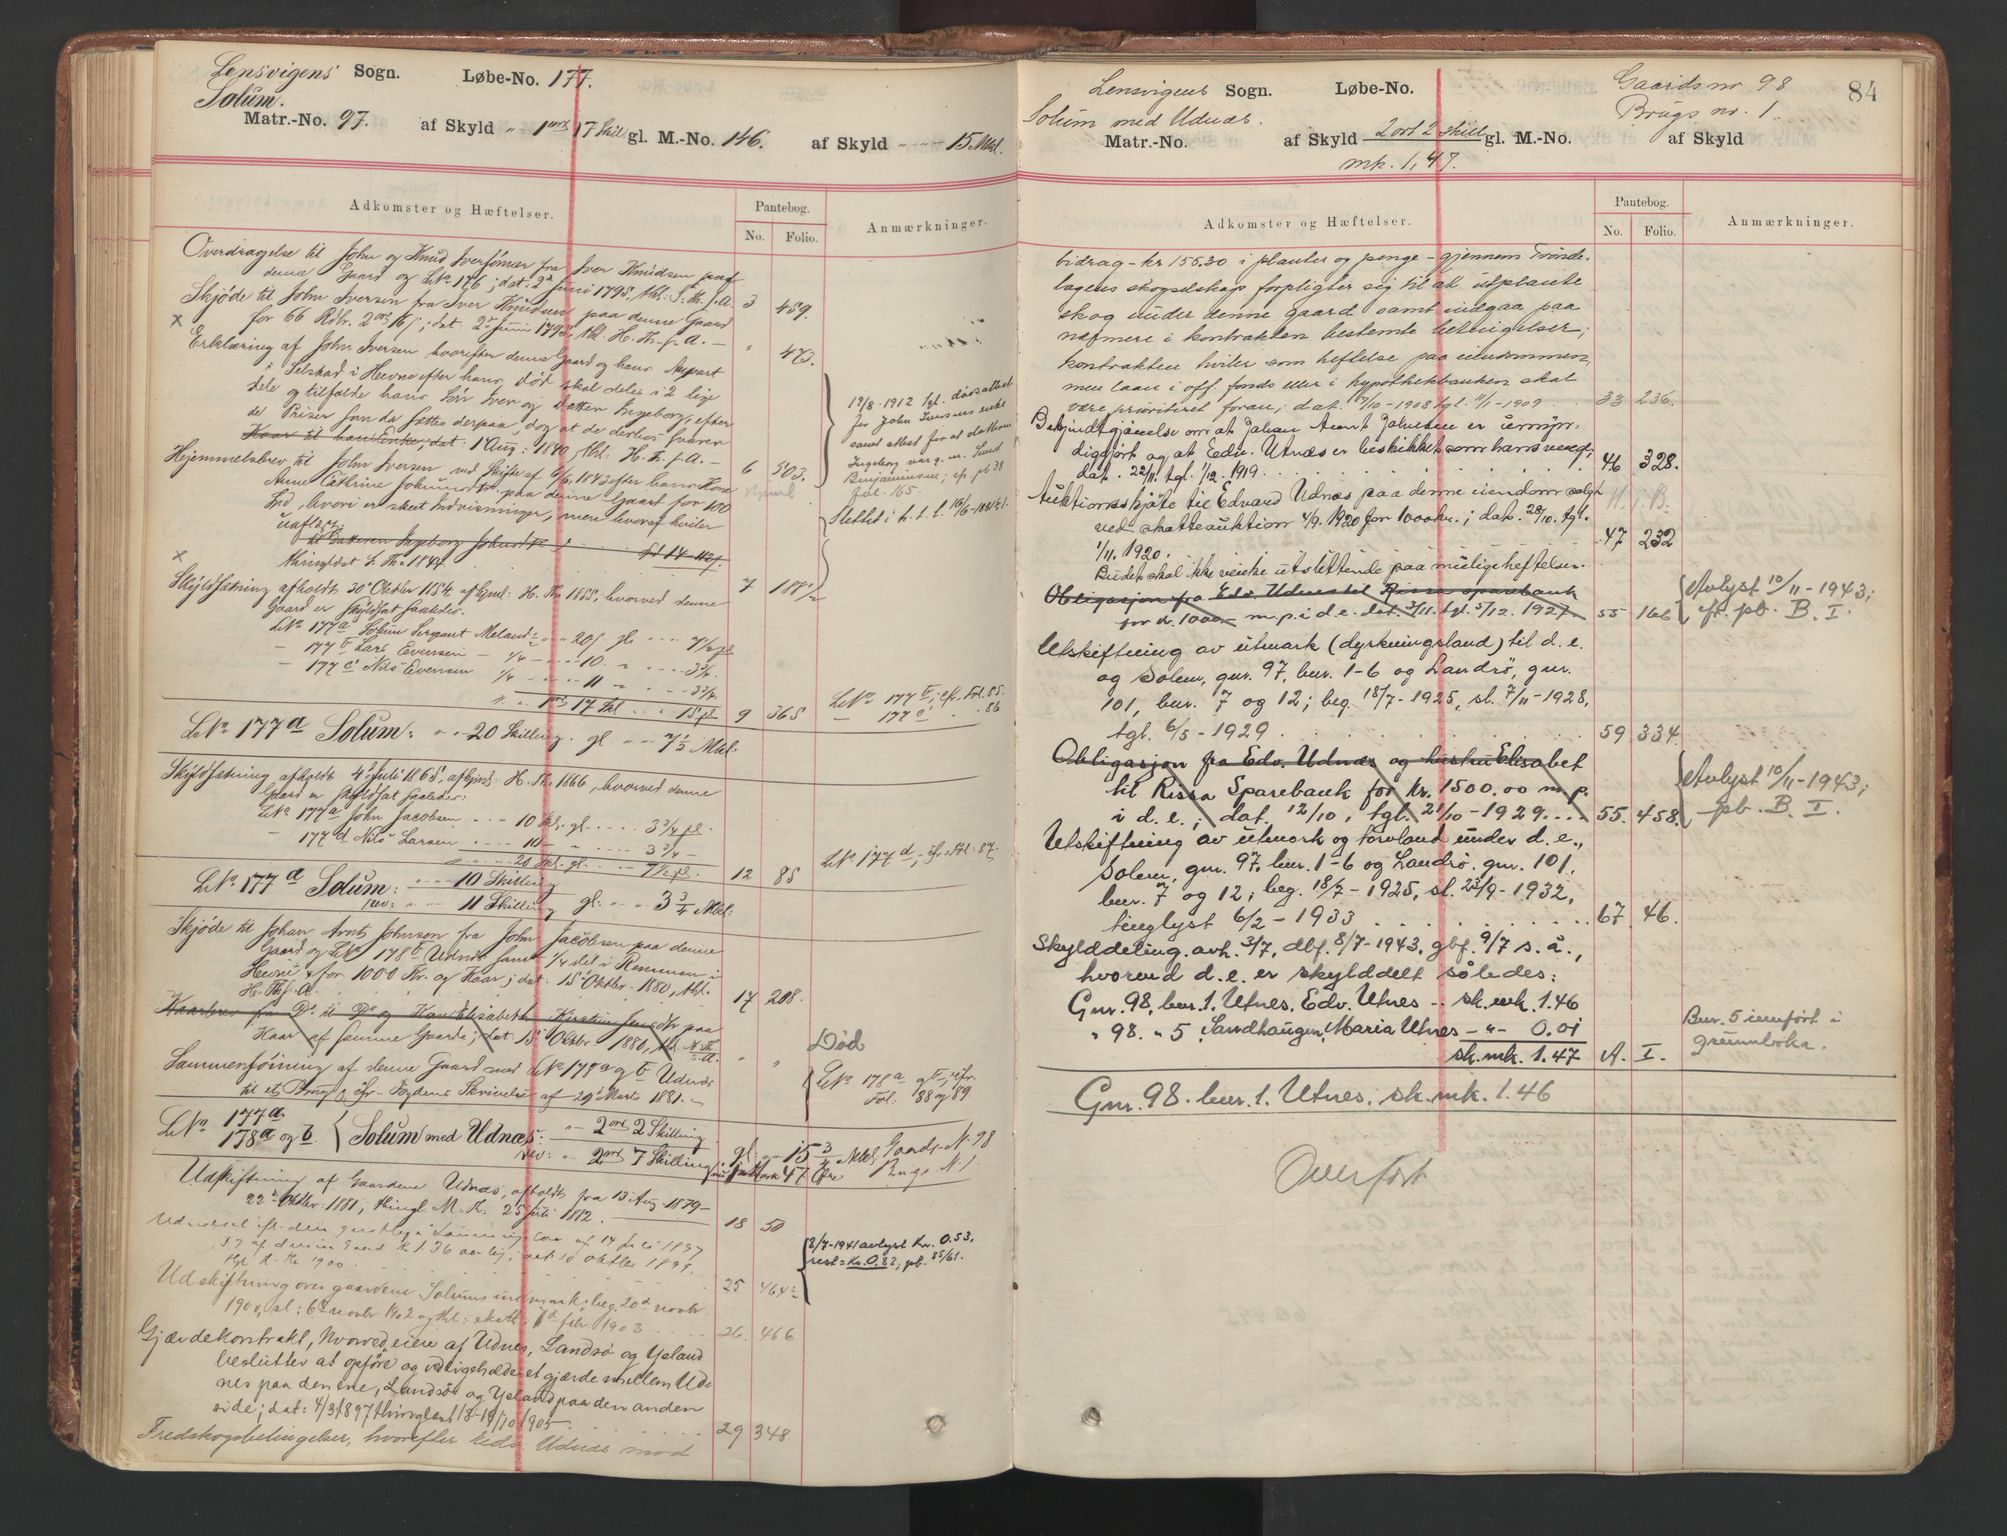 Lensvigens Sogn. Løbe-No. 177.
Solum.
Matr.-No. 97. af Skyld " 1 ort 17 Skil gl. M.-No. 146. af Skyld 15 Mkl.
Adkomster og Hæftelser.
Pantebog.
No. Folio.
Anmærkninger.
Overdragelse til John og Knud Iversönner fra Iver Knudsen paa
denne Gaard og LNo 176; dat: 2den Juni 1795, thl: S. M. f. A. 3 459.
Skjöde til John Iversen fra Iver Knudsen paa denne Gaard
for 66 Rdlr. 2 ort 16 s; dat. 2den Juni 1795, thl. H. Th. f. A. " 473.
Erklæring af John Iversen, hvorefter denne Gaard og hans Aepart
i Selskad i Hevne efter hans död skal deles i 2 lige
dele og tilfalde hans Sön Iver og Datter Ingeborg, efter
de Priser som da sættes derpaa, dog at de derhos svarer
Kaar til hans Enke; dat. 1 Aug: 1840, thl. H. Th. f. A. 6 503.
Hjemmelsbrev til John Iversen ved Skifte af 6/6 1843 efter hans Kone
Anne Cathrine Johnsdtr. paa denne Gaard for 100
Spd., hvori er skeet Indvisninger, men hvoraf hviler
uafløst:
til Datteren Ingeborg Johnsdtr
thinglæst S. Th. 1844. 7 188 1/2
19/8-1912 tgl. dødsattest
for John Iversens enke
samt attest for at datteren
Ingeborg var g. m.
Benjaminsen; cfr. pb 38
fol. 165.
Slettet i h. t. l. 10/6-1881 § 1.
Skyldsætning afholdt 30 Oktbr 1854 afhjml: H. Th. 1855, hvorved denne
Gaard er skyldsat saaledes.
LNo 177a Solum Sergeant Meland 20 s gl. 7 1/2 pl
177b Lars Evensen 1/4 10 3 3/4
177c Nils Evensen 1/4 11 3 3/4
1 ort 17 Skl 15 pl 9 365
LNo 177b, cfr. Fol. 85.
177c " 86
LNo 177a Solum: " 20 Skilling. gl. " 7 1/2 Mkl.
Skyldsætning afholdt 4 Juli 1865, afhjml: H. Th. 1866, hvorved denne
Gaard er skyldsat saaledes:
LNo 177a John Jacobsen 10 Skl. gl. 3 3/4 pl.
177d Nils Larsen 10 3 3/4
20 Skl. gl. 7 1/2 pl. 12 85
LNo 177d, cfr. Fol. 87.
LNo 177a Solum: " 10 Skilling
rev: " 11 Skilling gl: " 3 3/4 Mkl:
Skjöde til Johan Arnt Johnsen fra John Jacobsen paa denne
Gaard og LNo 178b Udnæs samt 1/4 del i Remmen i
Hevne for 1000 Kr. og Kaar; dat: 15 Oktbr. 1880, thl.
H. Th. f. A. 17 208.
Kaarbrev fra Do til Do og Kone Elisabeth Kirstine paa
Kaar af samme Gaarde; dat: 15 Oktbr 1880, thl. H. Th. f. A. " "
Död
Sammenföining af denne Gaard med LNo 178a og b Udnæs
til et Brug cfr. Fogdens Skrivelse af 29 Marts 1881.
LNo 178a og b, cfr.
Fol. 88 og 89.
LNo 177a 178a og b Solum med Udnæs: " 2 ort 2 Skilling. gl: " 15 3/4 Mkl. Gaards-N. 98
rev: " 2 ort 7 Skilling ny Skyld Mark 47 Øre Brugs N. 1.
Udskiftning af Gaardene Udnæs, afholdt fra 13 Aug 1879-
22de Oktbr. 1881, thingl. M. Th. 25 Juli 1882. 18 50
Udvidsel ift. den gjestlige Lönnings Lov af 14 Juli 1897
§ 7 af denne Gaard Kr 1.36 aarlig, dat. 10 oktber 1899,
tgl. H. Th. 1900. 25 464 2
8/7-1941 avlyst Kr. 0.53,
rest = Kr. 0.83; pb. 85/61.
Udskiftning over gaardene Solums indmark; beg. 20de novbr
1900, sl: 6te novbr 1902 og thl: ekstr. 7de febr. 1903 26. 466
Gjærdekontrakt, hvorved eiere af Udnes, Landsö og Ysland
beslutter at opföre og vedligeholde et gjærde mellem Ud-
nes paa den ene, Landsö og Ysland paa den anden
side; dat: 4/3 1897 thinglæst 18-19/10 1905 29 348
Fredskogsbetingelser, hvorefter eier Udnæs mod
Lensvigens Sogn. Løbe-No. Gaards nr 98 84
Solum med Udnæs. Brugs nr. 1.
Matr.-No. af Skyld 2 ort 2 skill gl. M.-No. af Skyld
mk. 1,47.
Adkomster og Hæftelser.
Pantebog.
No. Folio.
Anmærkninger.
bidrag - kr 155.30 i planter og penge - gjennem Trönde-
lagens skogselskap forpligter sig til at utplante
skog under denne gaard samt indgaa paa
nærmere i kontrakten bestemte betingelser;
kontrakten hviler som heftelse paa eiendommen,
men laan i off. fonds eller i hypothekbanken skal
være prioritert foran; dat. 7/10-1908 tgl. 11/1-1909 33 236.
Bekjendtgjörelse om at Johan Arnt Johnsen er umyn-
diggjort og at Edv. Utnæs er beskikket som hans verge;
dat. 22/11 tgl. 1/12. 1919. 46 328.
Auktionsskjöte til Edvard Udnæs paa denne eiendom solgt
ved skatteauktion 4/9. 1920 for 1000 kr.; dat. 28/10. tgl.
1/11. 1920. 47 232
Budet skal ikke virke utslettende paa mulige heftelser.
Obligasjon fra Edv. Udnæs til Rissa sparebank
for kr. 1000 m. p. i d. e. dat. 3/11. tgl. 5/12. 1927. 55 166
Avlyst 10/11-1943;
cfr. pb. B. I.
Utskiftning av utmark (dyrkningsland) til d. e.
og Solem, gnr. 97, bnr. 1-6 og Landrö, gnr.
101, bnr. 7 og 12; beg. 18/7-1925, sl. 7/11-1928,
tgl. 6/5-1929 59 334.
Obligasjon fra Edv. Udnæs og hustru Elisabet
til Rissa Sparebank for kr. 1500.00 m. p.
i d. e.; dat. 12/10, tgl. 21/10-1929. 55. 458.
Avlyst 10/11-1943;
pb. B. I.
Utskiftning av utmark og torvland under d. e.,
Solem, gnr. 97, bnr. 1-6 og Landrö, gnr. 101,
bnr. 7 og 12; beg. 18/7-1925, sl. 23/9-1932,
tinglyst 6/2-1933 67. 46.
Skylddeling. avh. 3/7, dbf. 8/7-1943, gbf. 9/7 s. å.,
hvorved d. e. er skylddelt således:
Gnr. 98, bnr. 1. Utnes. Edv. Utnes - sk. mk. 1.46
" 98. " 5, Sandhaugen, Maria Utnes - " - 0.01
sk. mk. 1.47 A. I.
Bnr. 5 innført i
grunnboka.
Gnr. 98. bnr. 1. Utnes. sk. mk. 1.46
Overført